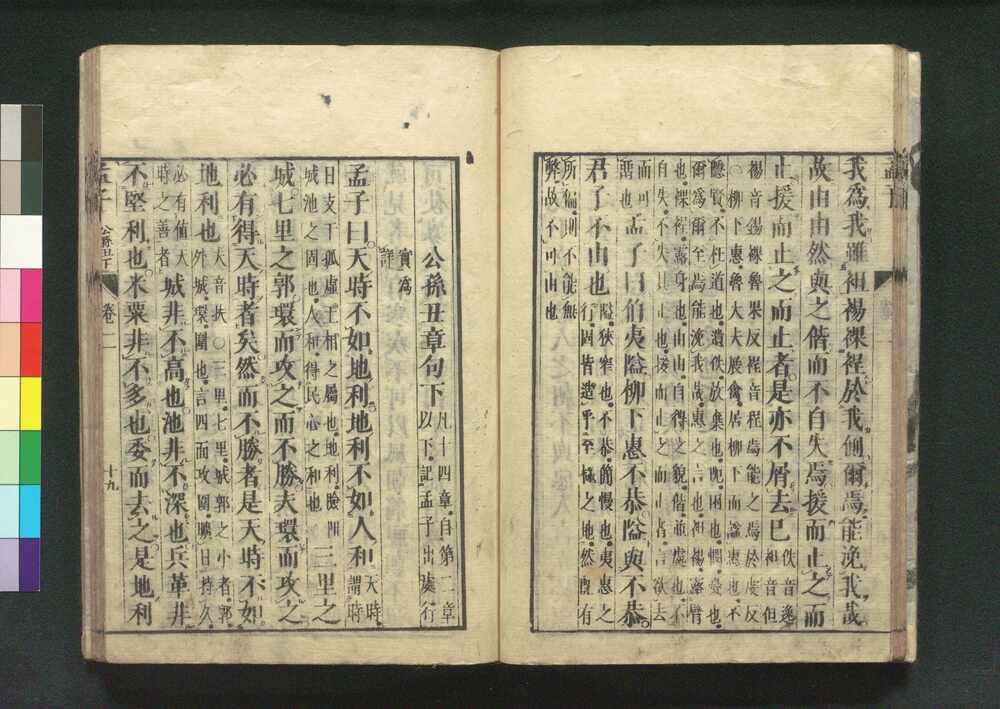 我爲我雖袒裼裸裎於我側爾焉能浼我哉
故由由然與之偕而不自失焉援而止之而
止援而止之而止者是亦不屑去已佚音逸袒音但
裼音錫裸魯果反裎音程焉能之焉於虔反
○柳下惠魯大夫展禽居柳下而諡惠也不
隱賢不枉道也遺佚放棄也阨困也憫憂也
爾爲爾至焉能浼我哉惠之言也袒裼露臂
也裸裎露身也由由自得之貌偕並處也不
自失不失其正也援而止之而止者言欲去
而可留也
孟子曰伯夷隘柳下惠不恭隘與不恭
君子不由也隘狹窄也不恭簡慢也夷惠之
行固皆造乎至極之地然既有
所偏則不能無
弊故不可由也
公孫丑章句下凡十四章自第二章
以下記孟子出處行
實爲
詳
孟子曰天時不如地利地利不如人和天時謂時
日支干孤虛王相之屬也地利險阻
城池之固也人和得民心之和也
三里之
城七里之郭環而攻之而不勝夫環而攻之
必有得天時者矣然而不勝者是天時不如
地利也夫音扶○三里七里城郭之小者郭
外城環圍也言四面攻圍曠日持久
必有值天
時之善者
城非不高也池非不深也兵革非
不堅利也米粟非不多也委而去之是地利
孟子
公孫丑下
卷二
十九